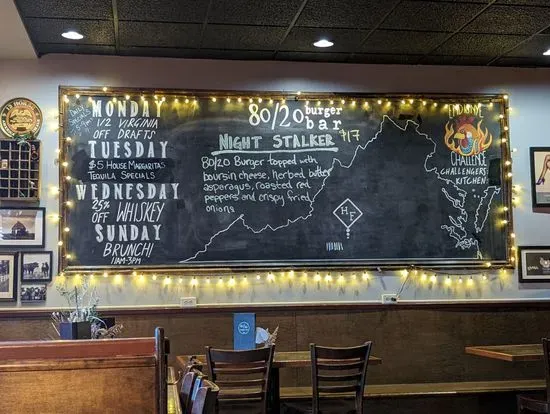 Daily
Specials
MONDAY
1/2 VIRGINIA
OFF DRAFTS
TUESDAY
$5 HOUSE MARGARITAS
TEQUILA SPECIALS
WEDNESDAY
25% OFF WHISKEY
SUNDAY
BRUNCH!
11AM-3PM
80/20 burger bar
NIGHT STALKER $17
80/20 Burger topped with
boursin cheese, herbed butter
asparagus, roasted red
peppers and crispy fried
onions
HF
CHALLENGE
CHALLENGERS
KITCHEN